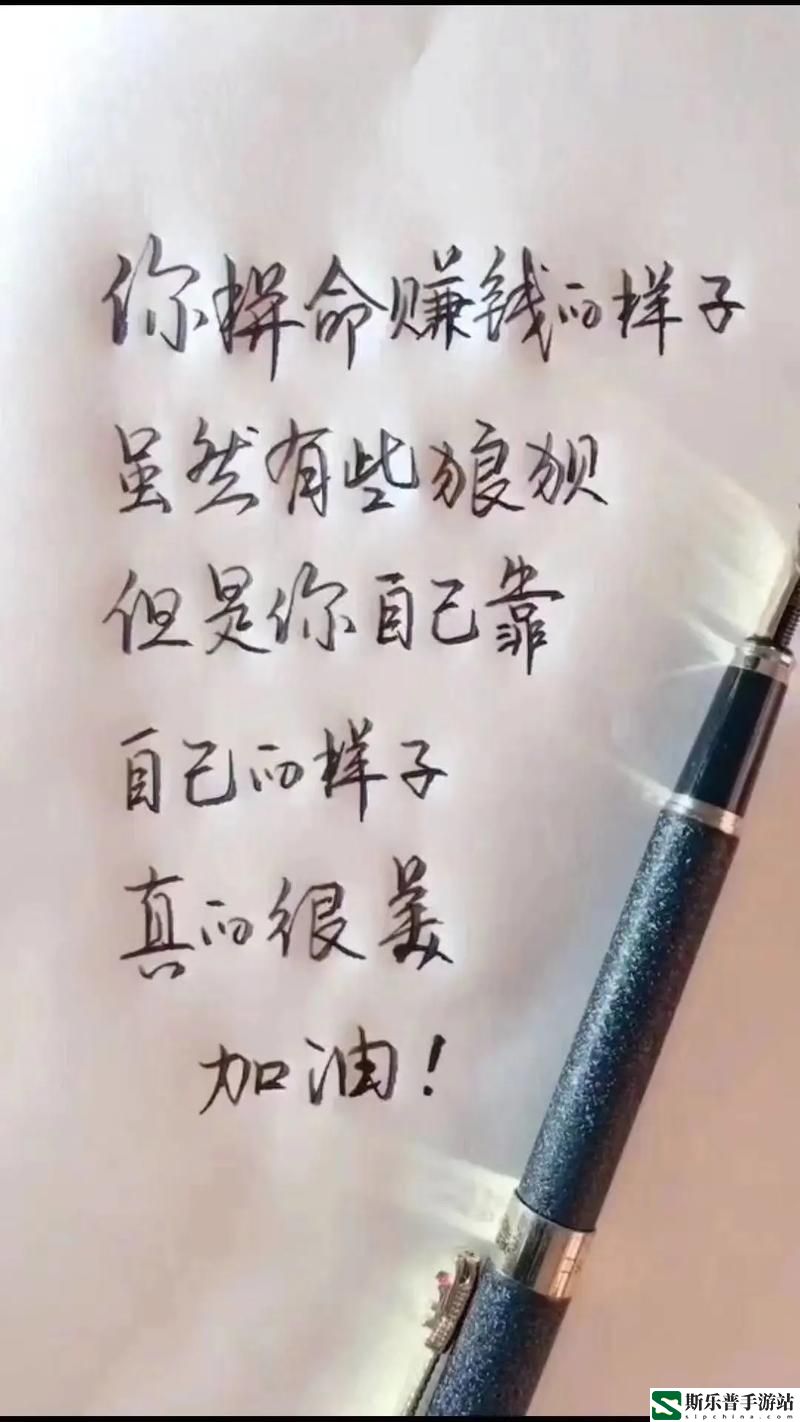 你拼命赚钱的样子
虽然有些狼狈
但是你自己靠
自己的样子
真的很美
加油！
斯乐普手游站
slpchina.com